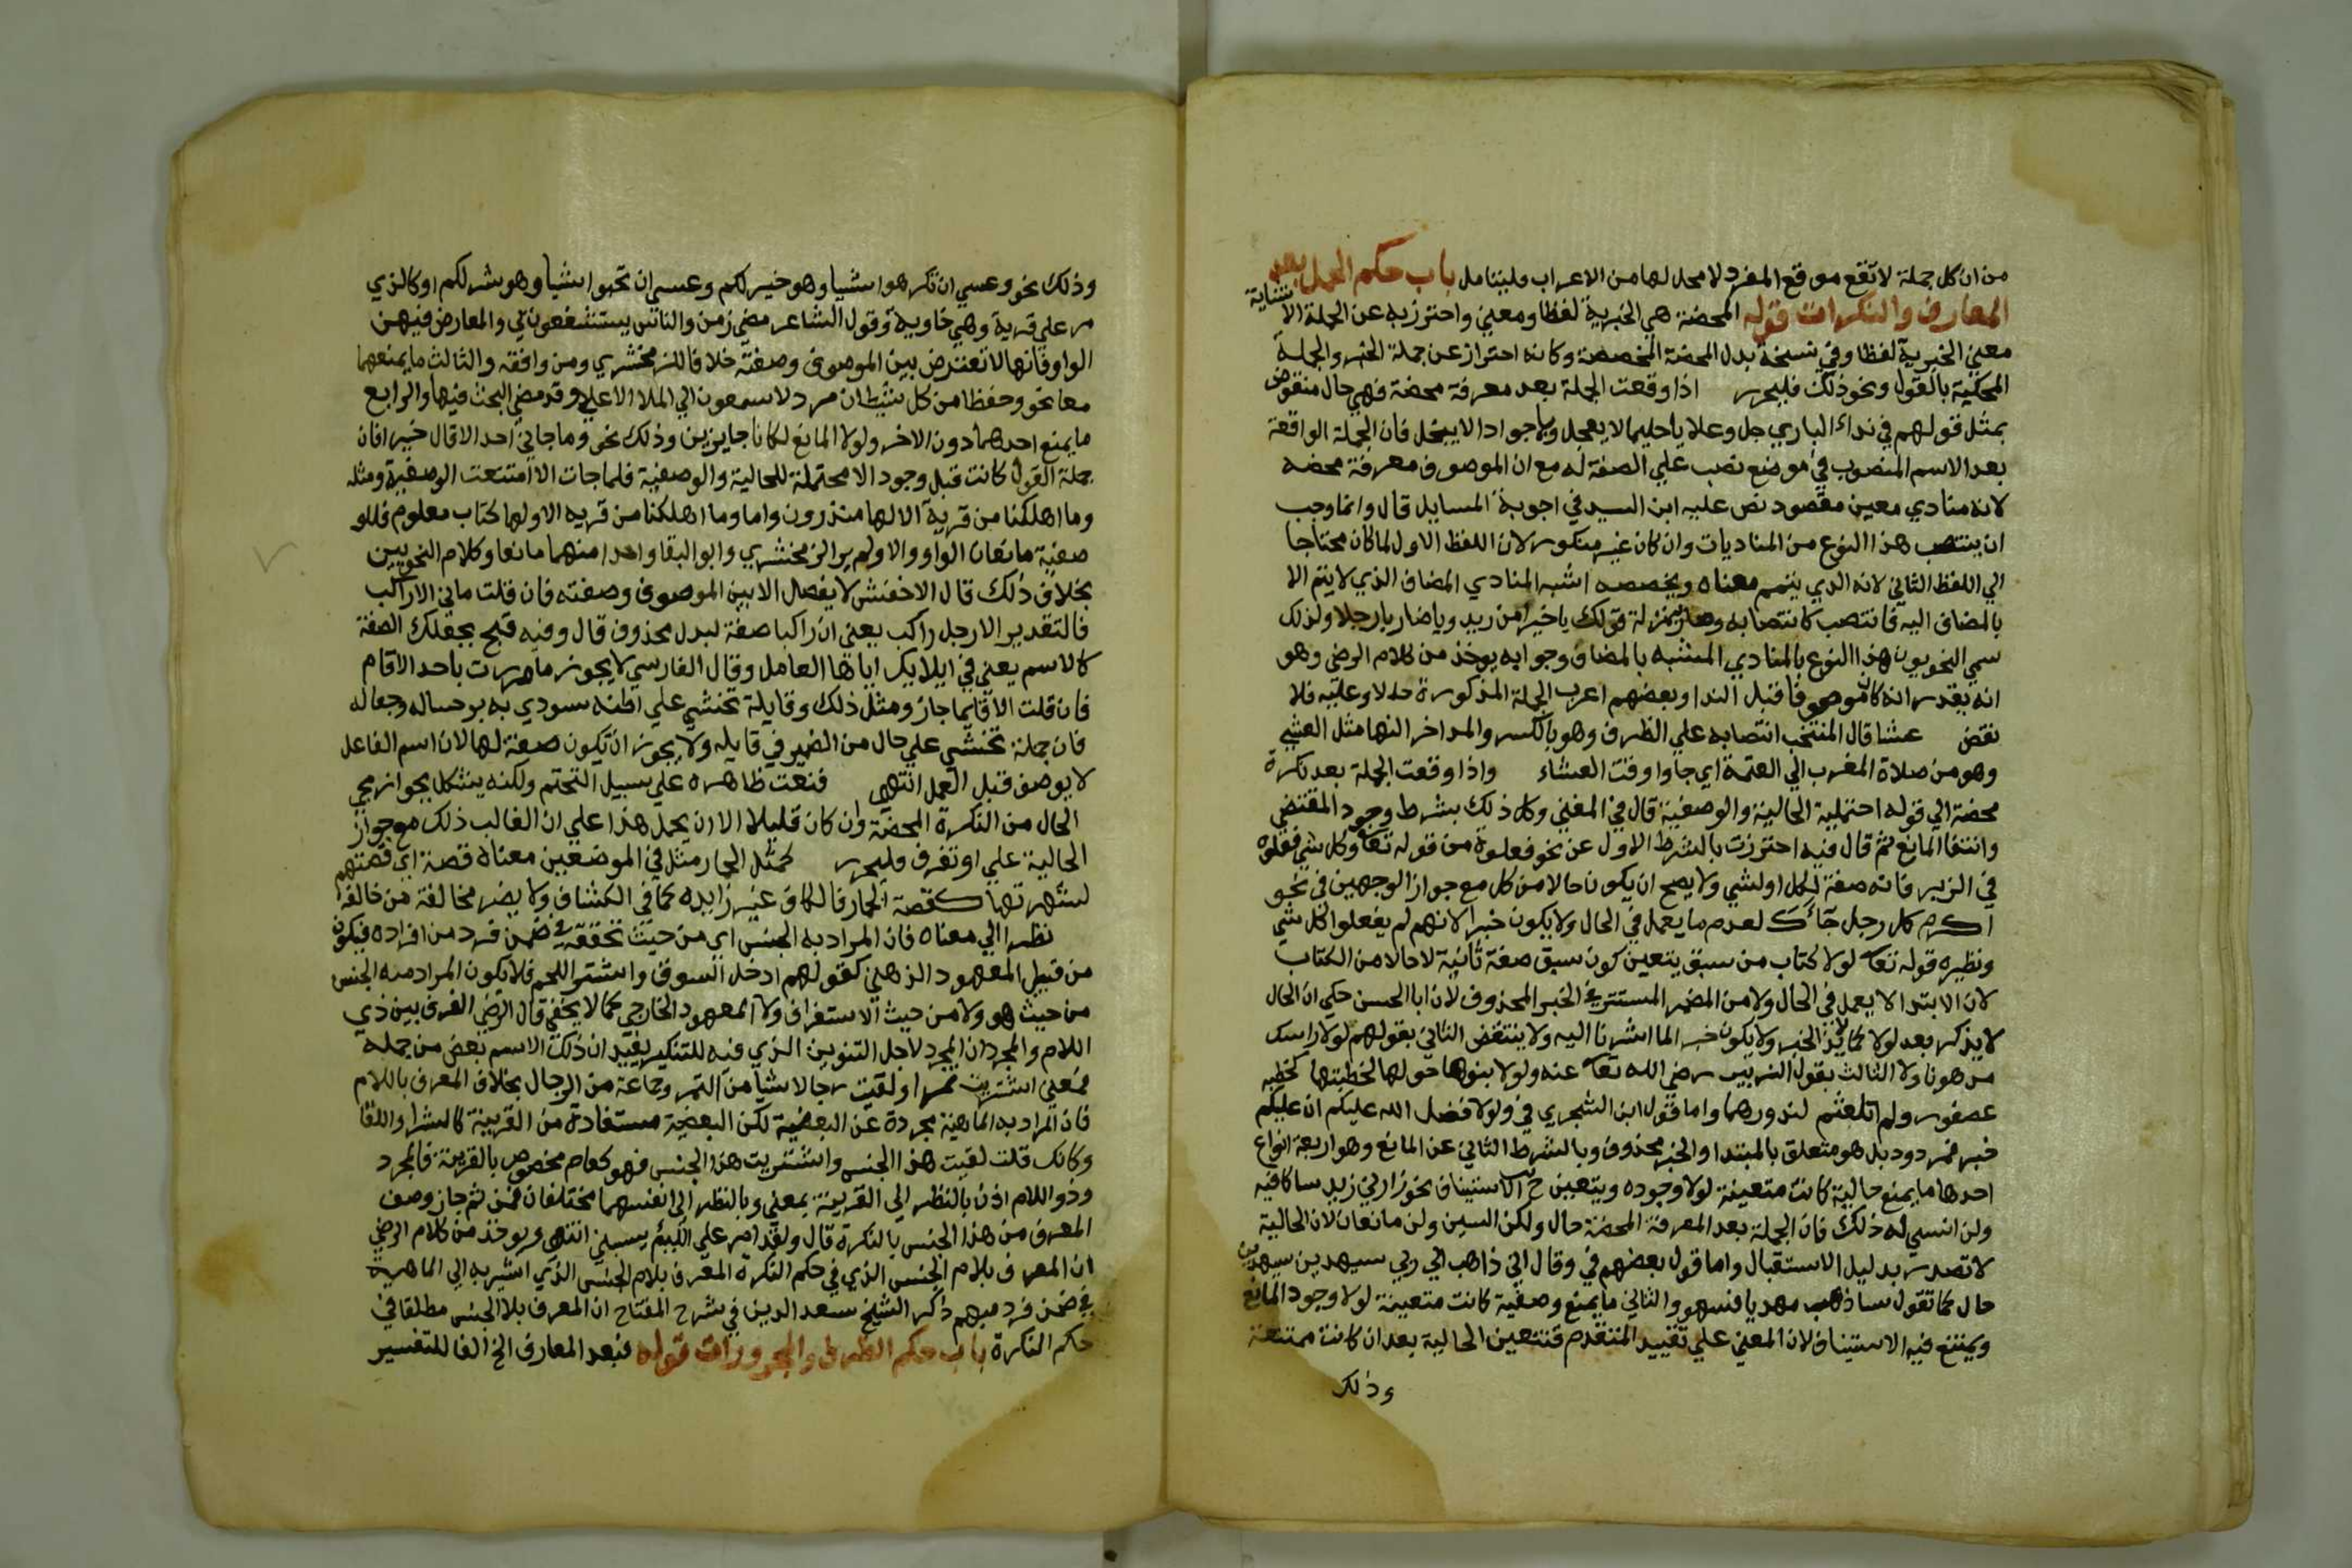 من ان كل جملة لا تقع موقع المفرد لا محل لها من الاعراب وليتامل باب حكم الجمل بعد
المعارف والنكرات قوله المحضة هي الخبرية لفظا ومعني واحترز به عن الجملة الانشائية
معني الخبرية لفظا وفي نسخة بدل المحضة المخصصة وكانه احتراز عن جملة الخبر والجملة
المحكية بالقول ونحو ذلك فليحرر اذا وقعت الجملة بعد معرفة محضة فهي حال منقوض
بمثل قولهم في نداء الباري جل وعلا ياحليما لا يعجل وياجوادا لا يبخل فان الجملة الواقعة
بعد الاسم المنصوب في موضع نصب علي الصفة له مع ان الموصوف معرفة محضه
لانه منادي معين مقصود نص عليه ابن السيد في اجوبة المسايل قال وانما وجب
ان ينتصب هذا النوع من المناديات وان كان غير منكور لان اللفظ الاول لما كان محتاجا
الي اللفظ الثاني لانه الذي يتمم معناه ويخصصه اشبه المنادي المضاف الذي لا يتم الا
بالمضاف اليه فانتصب كانتصابه وصار بمنزلة قولك ياخيرا من زيد وياضاربا رجلا ولذلك
سمي النحويون هذا النوع بالمنادي المشبه بالمضاف وجوابه يوخذ من كلام الرضي وهو
انه يقدر انه كان موصوفا قبل الندا وبعضهم اعرب الجملة المذكورة حالا وعليه فلا
نقض عشا قال المنتخب انتصابه علي الظرف وهو بالكسر والمد اخر النهار مثل العشي
وهو من صلاة المغرب الي العتمة اي جاوا وقت العشاء واذا وقعت الجملة بعد نكرة
محضة الي قوله احتملية الحالية والوصفية قال في المغني وكل ذلك بشرط وجود المقتضي
وانتفا المانع ثم قال فيه احترزت بالشرط الاول عن نحو فعلوة من قوله تعا وكل شي فعلوه
في الزبر فانه صفة لكل او لشي ولا يصح ان يكون حالا من كل مع جواز الوجهين في نحو
اكرم كل رجل جآئك لعدم ما يعمل في الحال ولا يكون خبرا لانهم لم يفعلوا كل شي
ونظيره قوله تعا لولا كتاب من سبق يتعين كون سبق صفة ثانية لا حالا من الكتاب
لان الابتدا لا يعمل في الحال ولا من الضمير المستتر في الخبر المحذوف لان ابا الحسن حكي ان الحال
لا يذكر بعد لولا كما لا يذكر الخبر ولا يكون خبرا لما اشرنا اليه ولا ينتقض الثاني بقولهم لولا راسك
مدهونا ولا الثالث بقول الزبير رضي الله تعا عنه ولولا بنوها حولها لخطبتها كخطبه
عصفور ولم اتلعثم لندورهما واما قول ابن الشجري في ولولا فضل الله عليكم ان عليكم
خبر فمردود بل هو متعلق بالمبتدا والخبر محذوف وبالشرط الثاني عن المانع وهو اربعة انواع
احدها ما يمنع حالية كانت متعينة لولا وجوده ويتعين ح الاستيناف نحو زارني زيد ساكافيه
ولن انسي له ذلك فان الجملة بعد المعرفة المحضة حال ولكن السين ولن مانعان لان الحالية
لا تصدر بدليل الاستقبال واما قول بعضهم في وقال اني ذاهب الي ربي سيهدين سيهدين
حال كما تقول ساذهب مهديا فسهو والثاني ما يمنع وصفية كانت متعينة لولا وجود المانع
ويمتنع فيه الاستيناف لان المعني علي تقييد المتقدم فتتعين الحالية بعد ان كانت ممتنعة
وذلك
وذلك نحو وعسي ان تكرهوا شيا وهو خير لكم وعسي ان تحبوا شيا وهو شر لكم او كالذي
مر علي قرية وهي خاوية وقول الشاعر مضي زمن والناس يستشفعون بي والمعارض فيهن
الواو فانها لا تعترض بين الموصوف وصفته خلافا للزمخشري ومن وافقه والثالث ما يمنعهما
معا نحو وحفظا من كل شيطان مرد لا يسمعون الي الملا الاعلي وقد مضي البحث فيها والرابع
ما يمنع احدهما دون الاخر ولولا المانع لكانا جايزين وذلك نحو وما جاني احد الا قال خيرا فان
جملة القول كانت قبل وجود الا محتملة للحالية والوصفية فلما جات الا امتنعت الوصفية ومثله
وما اهلكنا من قرية الا لها منذرون واما وما اهلكنا من قريه الا ولها كتاب معلوم فللو
صفية مانعان الواو والا ولم ير الزمخشري وابو البقا واحدا منهما مانعا وكلام النحويين
بخلاف ذلك قال الاخفش لا يفصل الا بين الموصوف وصفته فان قلت ماني الا راكب
فالتقدير الا رجل راكب يعني ان راكبا صفة لبدل محذوف قال وفيه قبح بجعلك الصفة
كالاسم يعني في ايلايك اياها العامل وقال الفارسي لا يجوز ما مررت باحد الا قام
فان قلت الا قايما جاز ومثل ذلك وقايلة تخشي علي اظنه سيودي به ترحساله وجعاله
فان جملة تخشي علي حال من الضمير في قايله ولا يجوز ان تكون صفة لها لان اسم الفاعل
لا يوصف قبل العمل انتهي فنعت ظاهره علي سبيل التحتم ولكنه يشكل بجواز مجي
الحال من النكرة المحضة وان كان قليلا الا ان يحمل هذا علي ان الغالب ذلك مع جواز
الحالية علي او تفرق وليحرر كمثل الحمار مثل في الموضعين معناه قصة اي قصتهم
لشهرتها كقصة الحمار فالكاف غير زايده كما في الكشاف ولا يضر مخالفة من خالفه
نظرا الي معناه فان المراد به الجنس اي من حيث تحققه في ضمن فرد من افراده فيكون
من قبيل المعهود الذهني كقولهم ادخل السوق واشتر اللحم فلا يكون المراد منه الجنس
من حيث هو ولا من حيث الاستغراق ولا المعهود الخارجي كما لا يخفي قال الرضي الفرق بين ذي
اللام والمجرد ان المجرد لاجل التنوين الذي فيه للتنكير يفيد ان ذلك الاسم بعض من جمله
فمعني اشتريت تمرا ولقيت رجالا شيا من التمر وجماعة من الرجال بخلاف المعرف باللام
فان المراد به الماهية مجردة عن البعضية لكن البعضية مستفادة من القرينة كالشرا واللقا
وكانك قلت لقيت هذا الجنس واشتريت هذا الجنس فهو كعام مخصوص بالقرينة فالمجرد
وذو اللام اذن بالنظر الي القرينة بمعني وبالنظر الي انفسهما مختلفان فمن ثم جاز وصف
المعرف من هذا الجنس بالنكرة قال ولقد امر علي اللييم يسبني انتهي ويوخذ من كلام الرضي
ان المعرف بلام الجنس الذي في حكم النكرة المعرف بلام الجنس الذي اشير به الي الماهية
في ضمن فرد مبهم ذكر الشيخ سعد الدين في شرح المفتاح ان المعرف بلا الجنس مطلقا في
حكم النكرة باب حكم الظرف والمجرورات قوله فبعد المعارف الخ الفا للتفسير